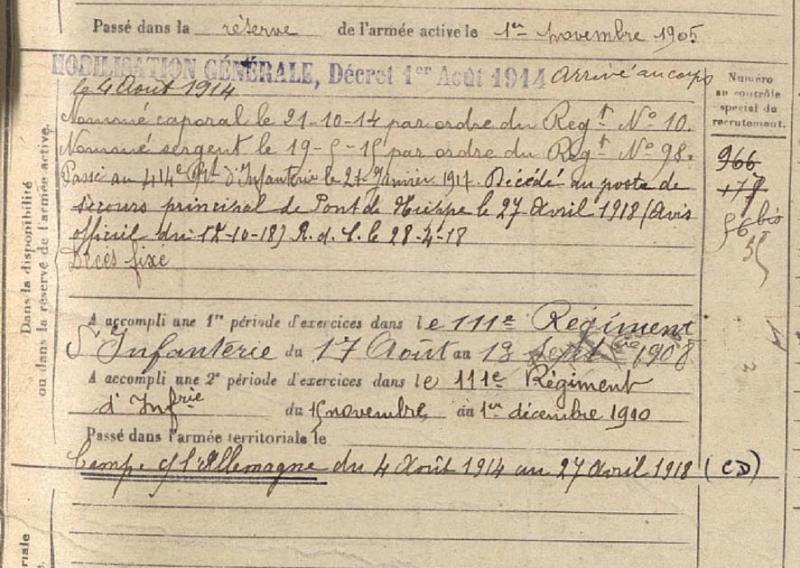 Passé dans la réserve de l'armée active le 1er novembre 1905
MOBILISATION GÉNÉRALE, Décret 1er Août 1914 Arrivé au corps
le 4 Aout 1914
Nommé caporal le 21-10-14 par ordre du Regt No 10.
Nommé sergent le 19-5-15 par ordre du Regt No 98.
Passé au 414e Rgt d'Infanterie le 21 Janvier 1917. Décédé au poste de
secours principal de Pont de le 27 Avril 1918 (Avis
officiel du 12-10-18) R. d. C. le 28-4-18
Décès fixe
Numéro
au contrôle
spécial du
recrutement.
966
+77
56 bis
Dans la disponibilité
ou dans la réserve de l'armée active.
A accompli une 1re période d'exercices dans le 111e Régiment
d'Infanterie du 17 Août au 13 1908
A accompli une 2e période d'exercices dans le 111e Régiment
d'Infrie du 15 novembre au 1er décembre 1910
Passé dans l'armée territoriale le
Camp. c/ l'Allemagne du 4 Août 1914 au 27 Avril 1918 (CD)